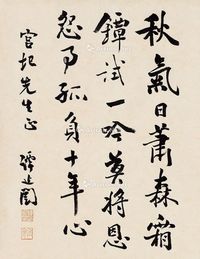 秋氣日蕭森霜
鐔試一吟莫將恩
怨事孤負十年心
宮起先生正
譚延闓